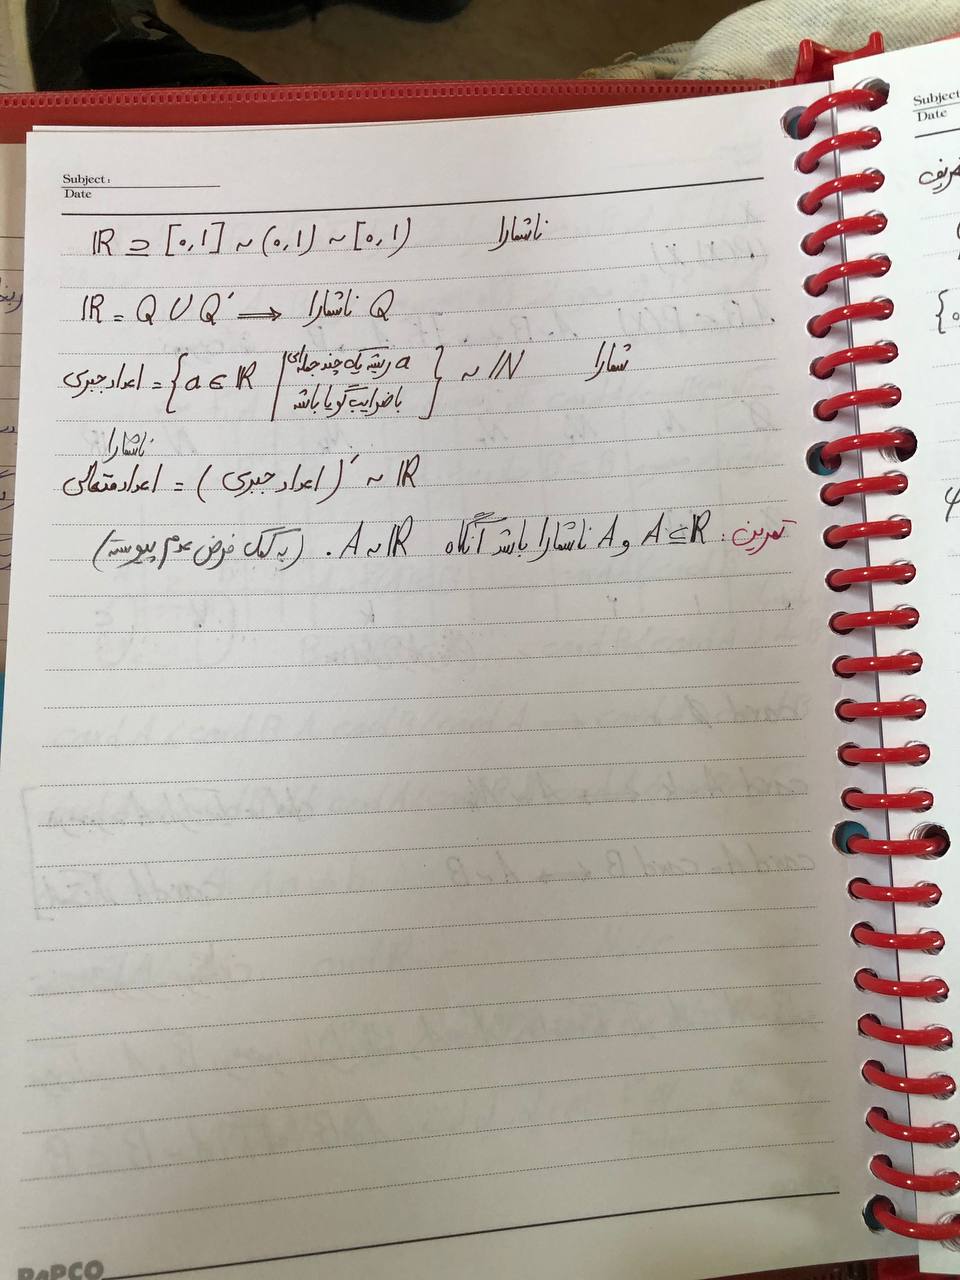 Subject:
Date
ℝ ⊇ [0,1] ~ (0,1) ~ [0,1) ناشمارا
ℝ = Q ∪ Q′ ⟹ ناشمارا Q
اعداد جبری = {a ∈ ℝ | a ریشه یک چند جمله‌ای با ضرایب گویا باشد} ~ ℕ شمارا
ناشمارا
اعداد متعالی = (اعداد جبری)′ ~ ℝ
تمرین: A ⊆ ℝ و A ناشمارا باشد آنگاه A ~ ℝ. (به کمک فرض عدم پیوسته)
PAPCO
Subject
Date